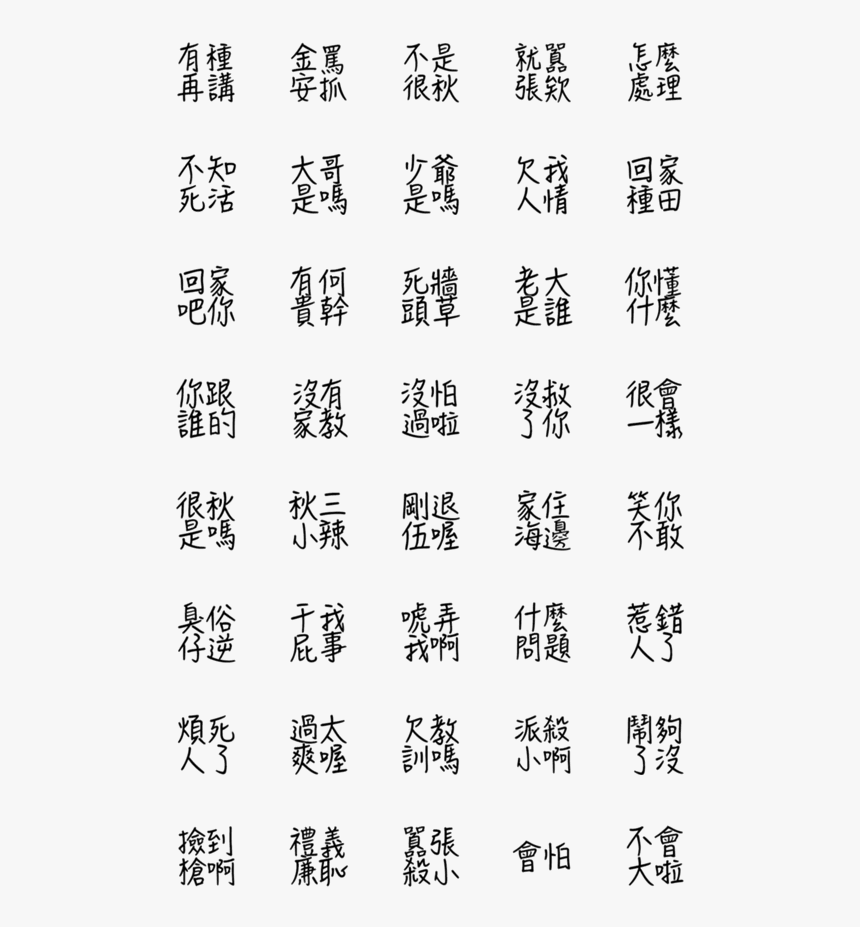 有種 金罵 不是 就囂 怎麼
再講 安抓 很秋 張欸 處理
不知 大哥 少爺 欠我 回家
死活 是嗎 是嗎 人情 種田
回家 有何 死牆 老大 你懂
吧你 貴幹 頭草 是誰 什麼
你跟 沒有 沒怕 沒救 很會
誰的 家教 過啦 了你 一樣
很秋 秋三 剛退 家住 笑你
是嗎 小辣 伍喔 海邊 不敢
臭俗 干我 唬弄 什麼 惹錯
仔逆 屁事 我啊 問題 人了
煩死 過太 欠教 派殺 鬧夠
人了 爽喔 訓嗎 小啊 了沒
撿到 禮義 囂張 會怕 不會
槍啊 廉恥 殺小 大啦